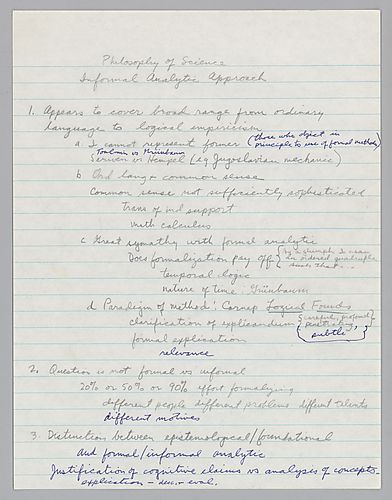 Philosophy of Science
Informal Analytic Approach
1. Appears to cover broad range from ordinary
language to logical empiricism
a. I cannot represent former (those who object in
principle to use of formal methods)
Toulmin vs Grünbaum
Scriven vs Hempel (eg Jugoslavian mechanic)
b Ord lang + common sense
Common sense not sufficiently sophisticated
trans of ind support
math calculus
c Great sympathy with formal analytic
Does formalization pay off {by a triumph I mean
an ordered quadruple
such that...
temporal logic
nature of time: Grünbaum
d Paradigm of method: Carnap Logical Founds
clarification of explicandum {careful, profound
penetrating,
subtle}
formal explication
relevance
2. Question is not formal vs informal
20% or 50% or 90% effort formalizing
different people different problems different talents
different motives
3. Distinction between epistemological/foundational
and formal/informal analytic
Justification of cognitive claims vs analyses of concepts
explication - desc. - eval.